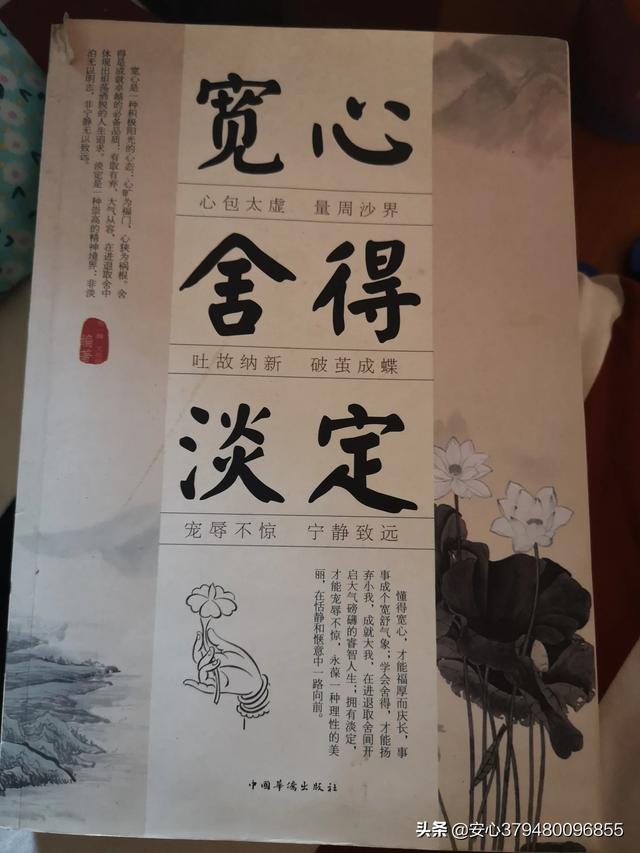 宽心是一种积极阳光的心态，心旷为福门，心狭为祸根。舍
得是成就卓越的必备品质：有取有弃，大气从容，在进退取舍中
体现出坦荡洒脱的人生追求。淡定是一种崇高的精神境界：非淡
泊无以明志，非宁静无以致远。
编著
宽心
心包太虚 量周沙界
舍得
吐故纳新 破茧成蝶
淡定
宠辱不惊 宁静致远
懂得宽心，才能福厚而庆长，事
事成个宽舒气象；学会舍得，才能扬
弃小我，成就大我，在进退取舍间开
启大气磅礴的睿智人生；拥有淡定，
才能宠辱不惊，永葆一种理性的美
丽，在恬静和惬意中一路向前。
中国华侨出版社
头条 @安心379480096855